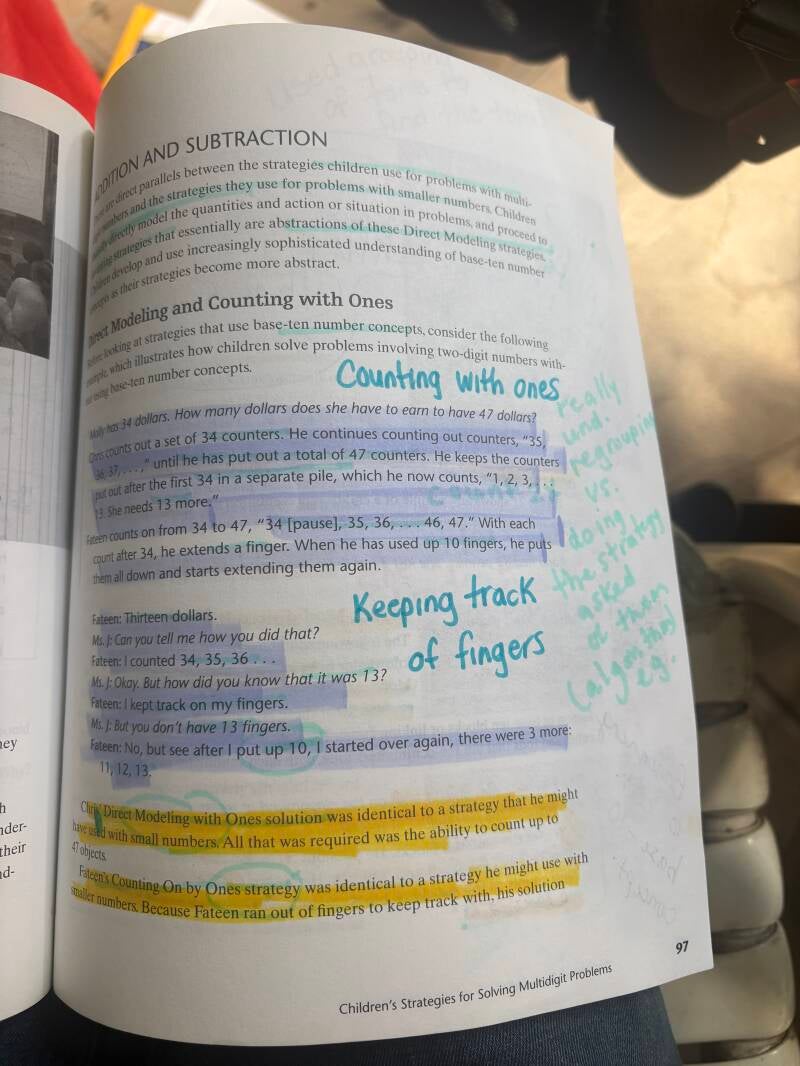 ADDITION AND SUBTRACTION
There are direct parallels between the strategies children use for problems with multi-
numbers and the strategies they use for problems with smaller numbers. Children
directly model the quantities and action or situation in problems, and proceed to
counting strategies that essentially are abstractions of these Direct Modeling strategies.
Children develop and use increasingly sophisticated understanding of base-ten number
concepts as their strategies become more abstract.
Direct Modeling and Counting with Ones
Before looking at strategies that use base-ten number concepts, consider the following
example, which illustrates how children solve problems involving two-digit numbers with-
out using base-ten number concepts.
Counting with ones
Molly has 34 dollars. How many dollars does she have to earn to have 47 dollars?
Chris counts out a set of 34 counters. He continues counting out counters, “35,
36, 37, . . . ,” until he has put out a total of 47 counters. He keeps the counters
put out after the first 34 in a separate pile, which he now counts, “1, 2, 3, . . .
13. She needs 13 more.”
Fateen counts on from 34 to 47, “34 [pause], 35, 36, . . . 46, 47.” With each
count after 34, he extends a finger. When he has used up 10 fingers, he puts
them all down and starts extending them again.
really
und.
regrouping
vs.
doing
the strategy
asked
of them
(algorithm)
eg.
Keeping track
of fingers
Fateen: Thirteen dollars.
Ms. J: Can you tell me how you did that?
Fateen: I counted 34, 35, 36 . . .
Ms. J: Okay. But how did you know that it was 13?
Fateen: I kept track on my fingers.
Ms. J: But you don’t have 13 fingers.
Fateen: No, but see after I put up 10, I started over again, there were 3 more:
11, 12, 13.
Chris’ Direct Modeling with Ones solution was identical to a strategy that he might
have used with small numbers. All that was required was the ability to count up to
47 objects.
Fateen’s Counting On by Ones strategy was identical to a strategy he might use with
smaller numbers. Because Fateen ran out of fingers to keep track with, his solution
97
Children’s Strategies for Solving Multidigit Problems
their